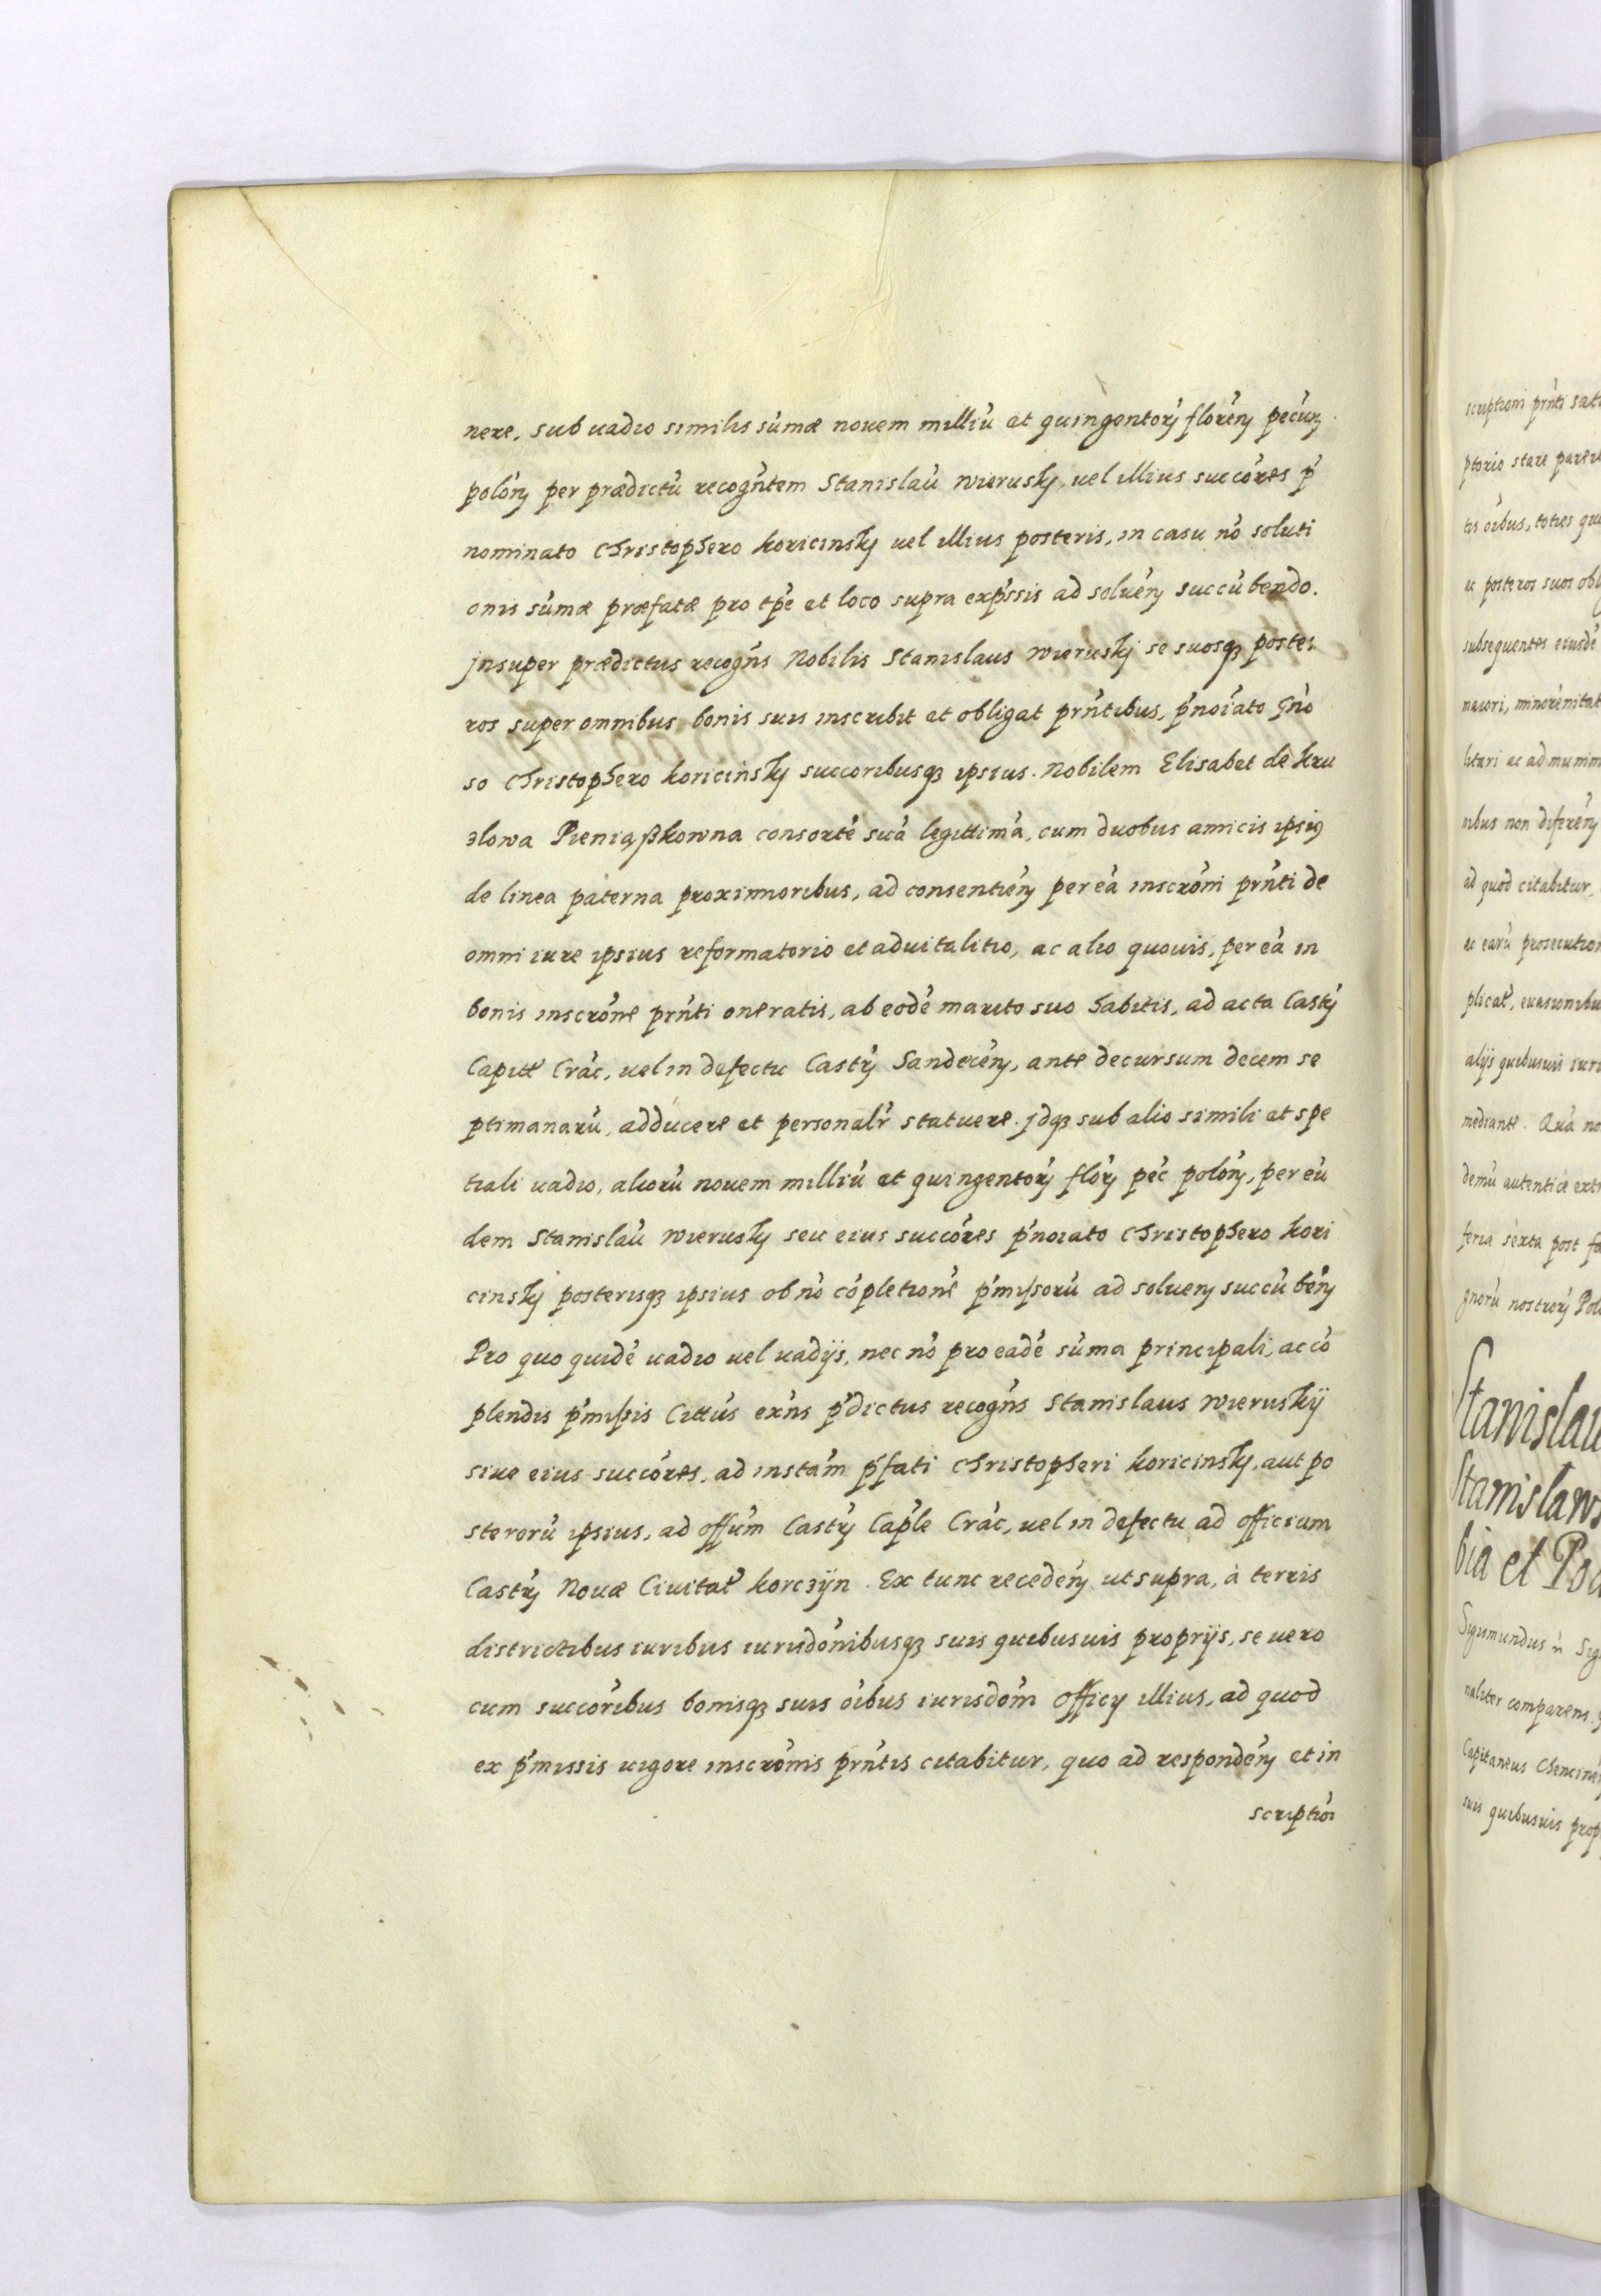 nere, sub uadio similis su̇mæ nouem milliu̇ et quingentorꝝ flore̍nꝝ pecu̍nꝝ
polo̍nꝝ per prædictu̇ recogn̍tem Stanislau̇ wieruskȳ, uel illius succo̍res p̍
nominato Christophero koricinskȳ uel illius posteris, in casu no̍ soluti
onis su̇mæ præfatæ pro tp̍e et loco supra exp̍ssis ad solue̍nꝝ succu̍bendo.
jnsuper prædictus recogn̍s Nobilis Stanislaus wieruskj se suosqꝫ poste:
ros super omnibus bonis suis inscribit et obligat prn̍tibus, p̍noi̍ato Gn̍o
so Christophero koricinskȳ succoribusqꝫ ipsius. Nobilem Elisabet de kru
zlowa Pieniąßkowna consorte̍ sua̍ legittima̍, cum duobus amicis ipsiꝰ
de linea paterna proximioribus, ad consentie̍nꝝ per ea̍ inscro̍ni prn̍ti de
omni iure ipsius reformatorio et aduitalitio, ac alio quouis, per ea̍ in
bonis inscro̍ne prn̍ti oneratis, ab eode̍ marito suo habitis, ad acta Castꝝ̍
Capitt̍ Cra̍c, uel in defectu Castꝝ̍ Sandece̍nꝝ, ante decursum decem se
ptimanaru̍, adducere et personalr̍ statuere. jdqꝫ sub alio simili et spe
tiali uadio, alioru̍ nouem milliu̍ et quingentorꝝ̍ flo̍rꝝ pe̍c polo̍nꝝ, per eu̍
dem Stanislau̍ wieruskȳ seu eius succo̍res p̍noiato Christophero kori
cinskj posterisqꝫ ipsius ob no̍ co̍pletione̍ p̍missoru̍ ad soluenꝝ succu̍be̍nꝝ
Pro quo quide̍ uadio uel uadijs, nec no̍ pro eade̍ su̍ma principali, ac co̍
plendis p̍missis Cittu̍s exn̍s p̍dictus recogn̍s Stanislaus wieruskij
siue eius succo̍res, ad insta̍m p̍fati Christopheri koricinskȳ, aut po
steroru̍ ipsius, ad offu̍m Castꝝ̍ Cap̍le Cra̍c, uel in defectu ad officium
Castꝝ̍ Nouæ Ciuitat̍ korczijn. Ex tunc recede̍nꝝ ut supra, à terris
districtibus iuribus iurisdo̍nibusqꝫ suis quibusuis proprijs, se uero
cum succo̍ribus bonisqꝫ suis oi̍bus iurisdo̍ni officij illius, ad quod
ex p̍missis uigore inscro̍nis prn̍tis citabitur, quo ad responde̍nꝝ et in
scriptioi̍
scriptioni prn̍ti sati
ptorio stare parere
tos oi̍bus, toties qu
ac posteros suos obl
subsequentes eiusde̍
maiori, minore̍nitat
litari ac ad munim
nibus non difere̍nꝝ
ad quod citabitur,
ac earu̍ prosecution
plicat̍, euasionibu
alijs quibusuis iuri
mediante. Qua̍ no
demu̍ autentice ext
feria sexta post fe
gnoru̍ nostrorꝝ̍ Pol
Stanislau
Stanislaws
bia et Po
Sigismundus Sig
naliter comparens.
Capitaneus Chencine̍
suis quibusuis prop